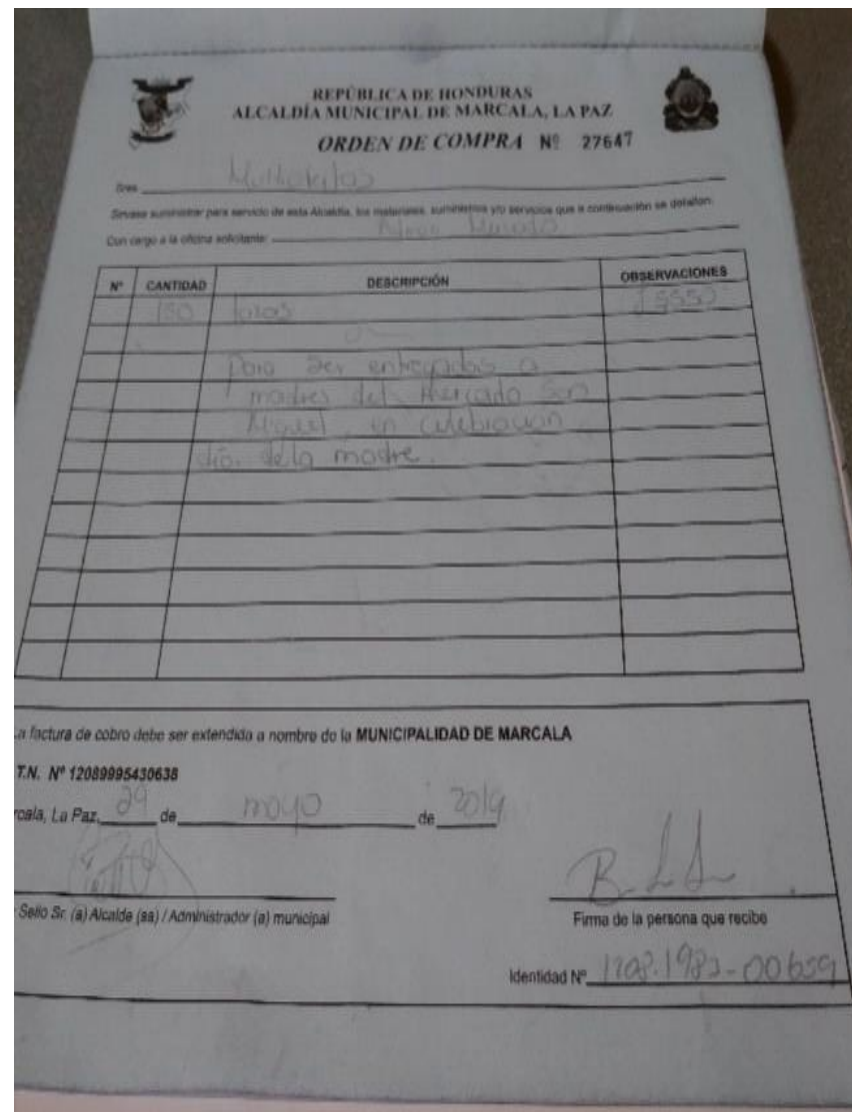 REPÚBLICA DE HONDURAS
ALCALDÍA MUNICIPAL DE MARCALA, LA PAZ
ORDEN DE COMPRA Nº 27647
Sres
Sirvase suministrar para servicio de esta Alcaldía, los materiales, suministros y/o servicios que a continuación se detallan:
Con cargo a la oficina solicitante:
Nº CANTIDAD DESCRIPCIÓN OBSERVACIONES
150
Para ser entregadas a
madres del Mercado San
Miguel, en celebracion
dia de la madre.
La factura de cobro debe ser extendida a nombre de la MUNICIPALIDAD DE MARCALA
T.N. Nº 12089995430638
rcala, La Paz, 29 de mayo de 2019
Sello Sr. (a) Alcalde (sa) / Administrador (a) municipal
Firma de la persona que recibe
Identidad Nº